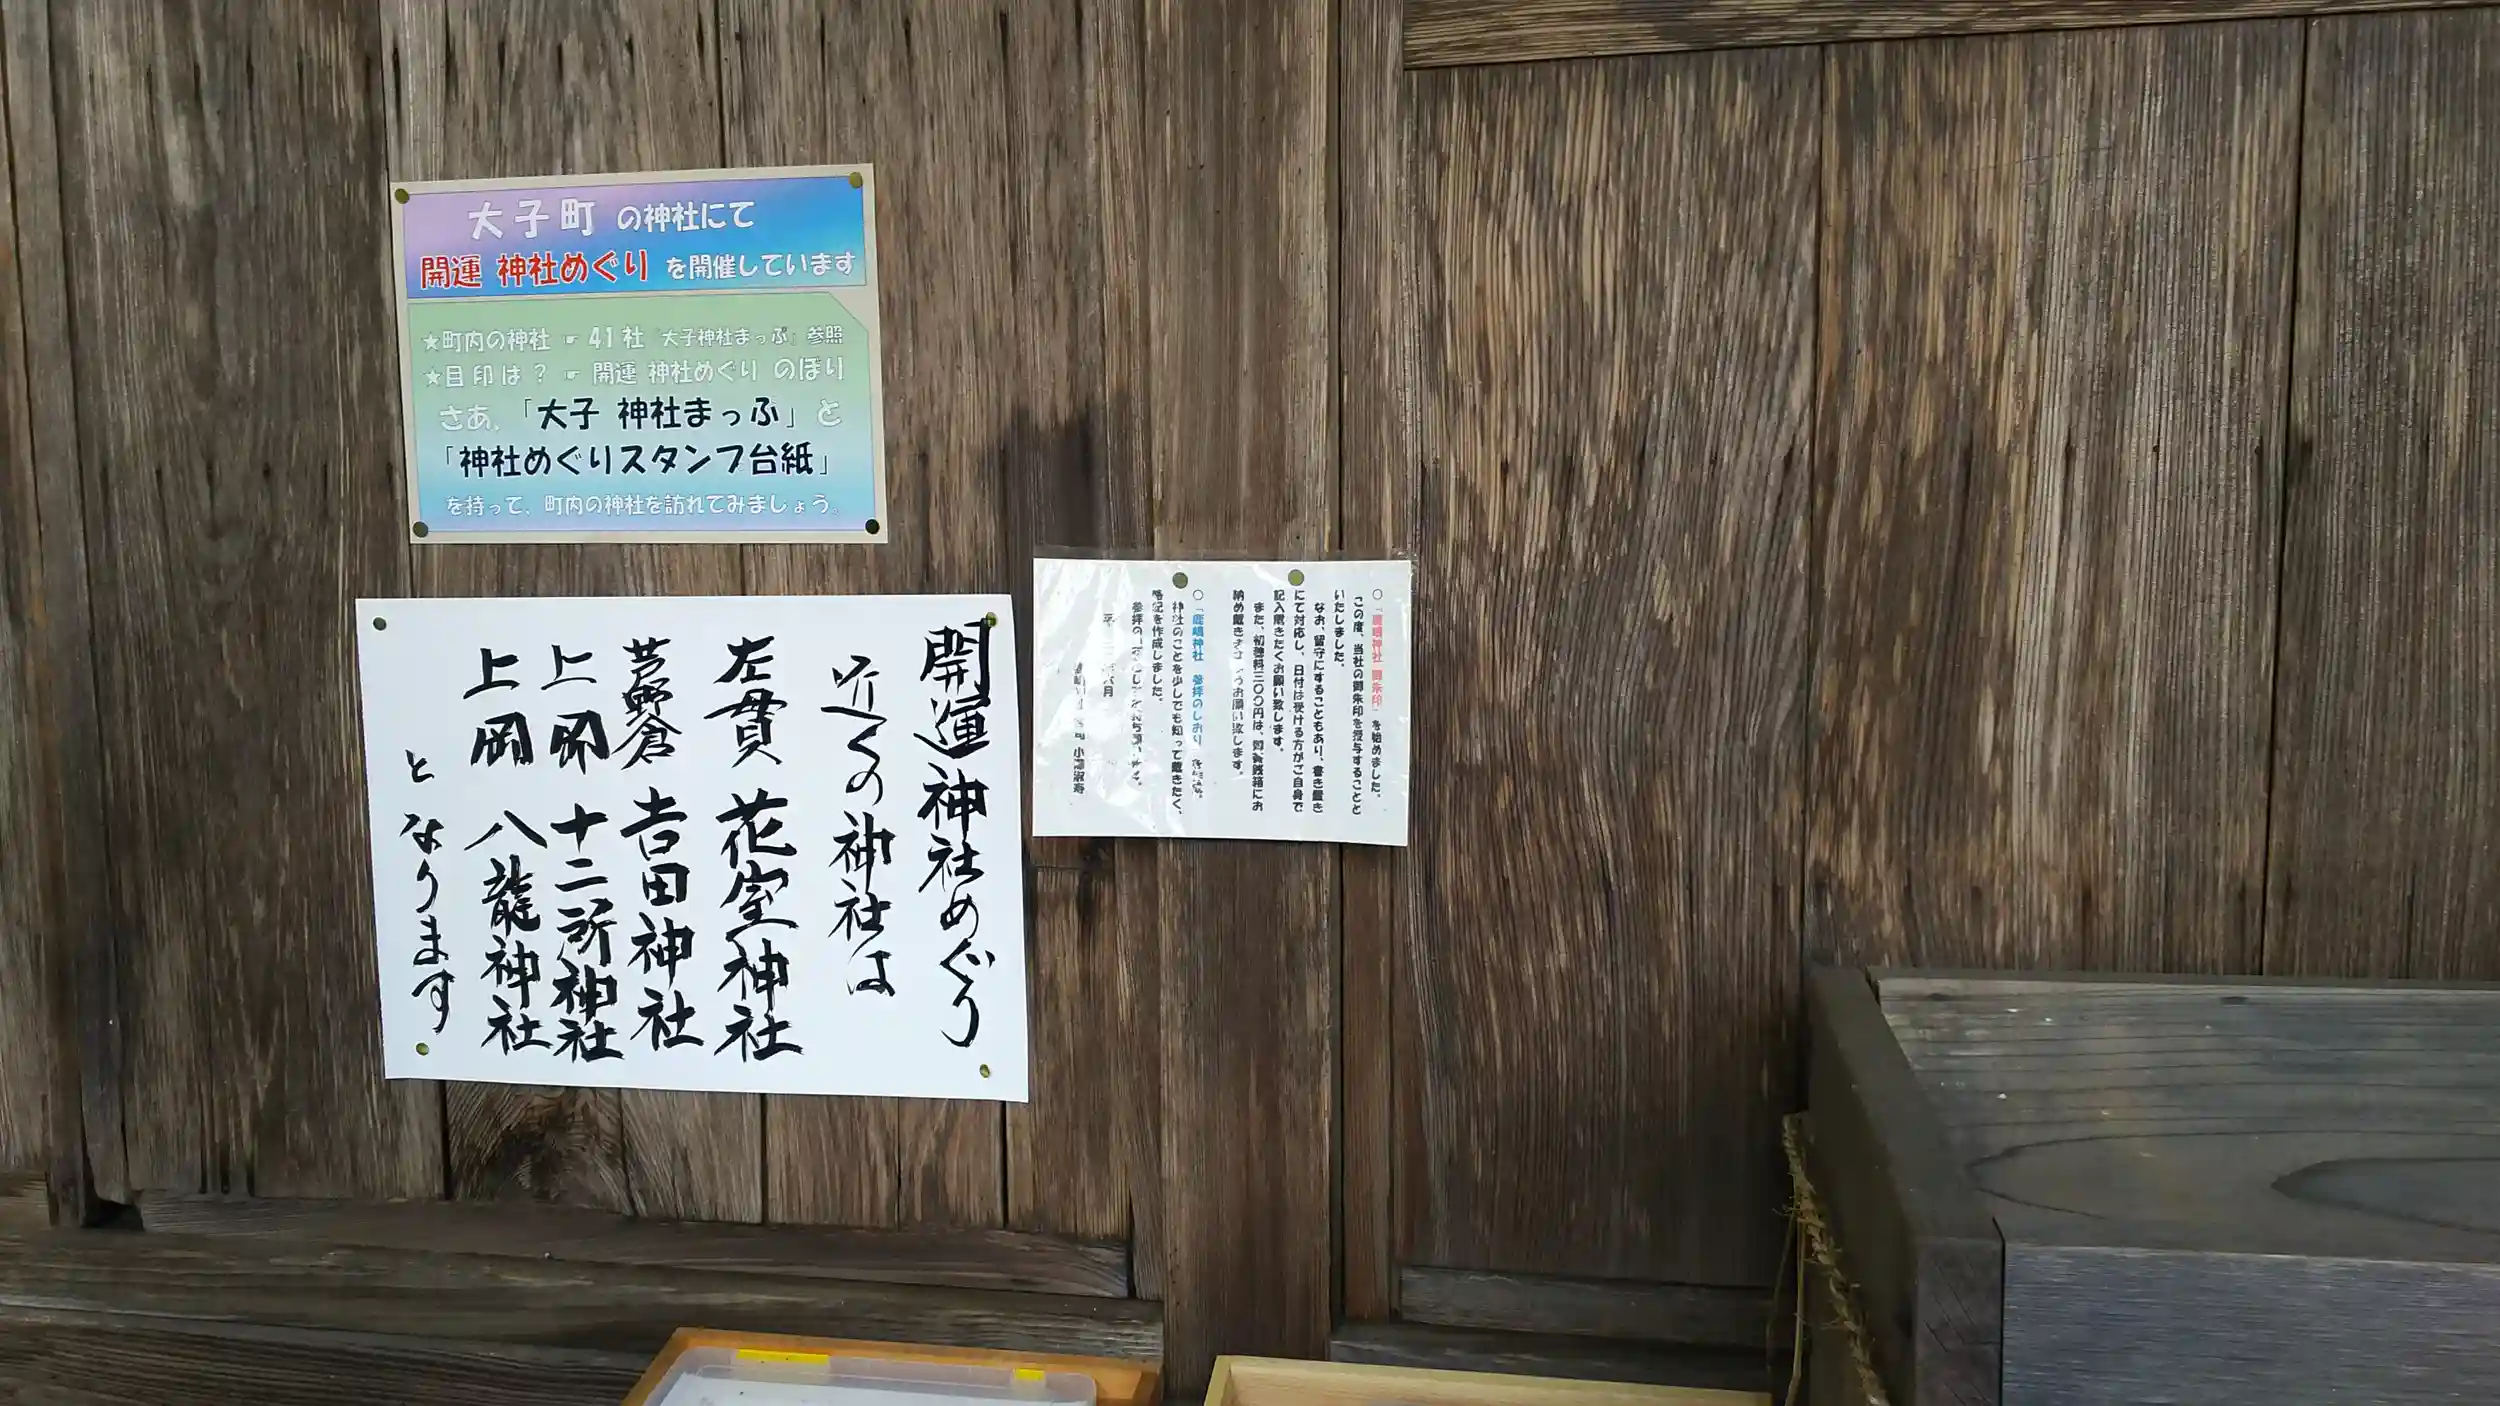 大子町 の神社にて
開運 神社めぐり を開催しています
★町内の神社 ☞ 41社 「大子神社まっぷ」参照
★目印は？ ☞ 開運 神社めぐり のぼり
さあ、「大子 神社まっぷ」と
「神社めぐりスタンプ台紙」
を持って、町内の神社を訪れてみましょう。
開運神社めぐり
近くの神社は
左貫 花室神社
芦野倉 吉田神社
上岡 十二所神社
上岡 八龍神社
となります
○「鹿嶋神社 御朱印」を始めました。
この度、当社の御朱印を授与することと
いたしました。
なお、留守にすることもあり、書き置き
にて対応し、日付は受ける方がご自身で
記入戴きたくお願い致します。
また、初穂料三〇〇円は、御賽銭箱にお
納め戴きますようお願い致します。
○「鹿嶋神社 参拝のしおり」を
神社のことを少しでも知って戴きたく、
略記を作成しました。
参拝の
月
小澤淑寿